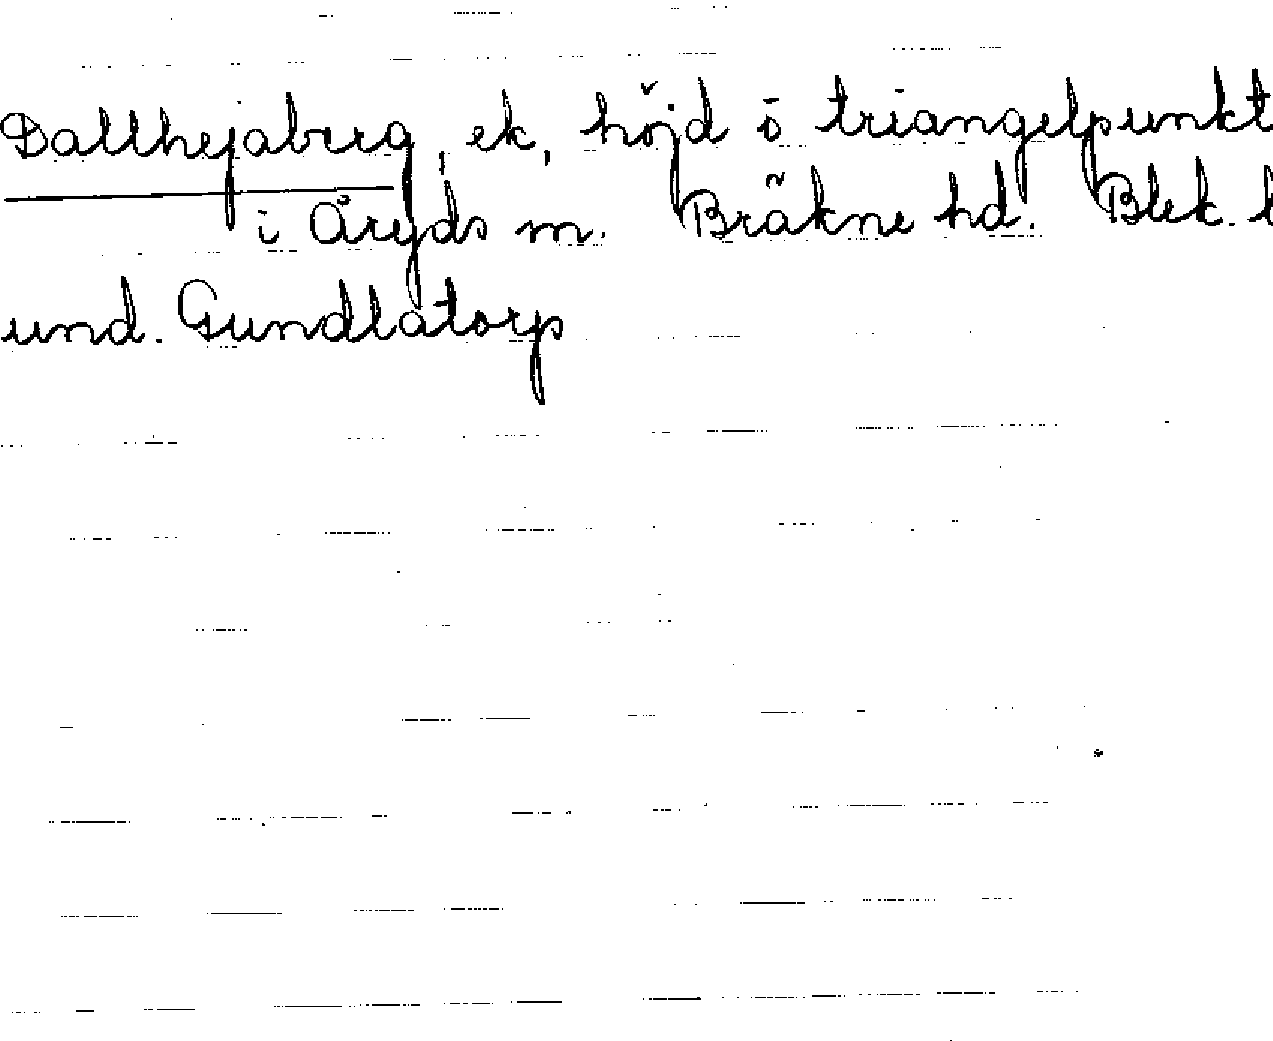 Dallhejaberg, ek, höjd o triangelpunkt
i Åryds m. Bräkne hd. Blek. l
und. Gundlatorp